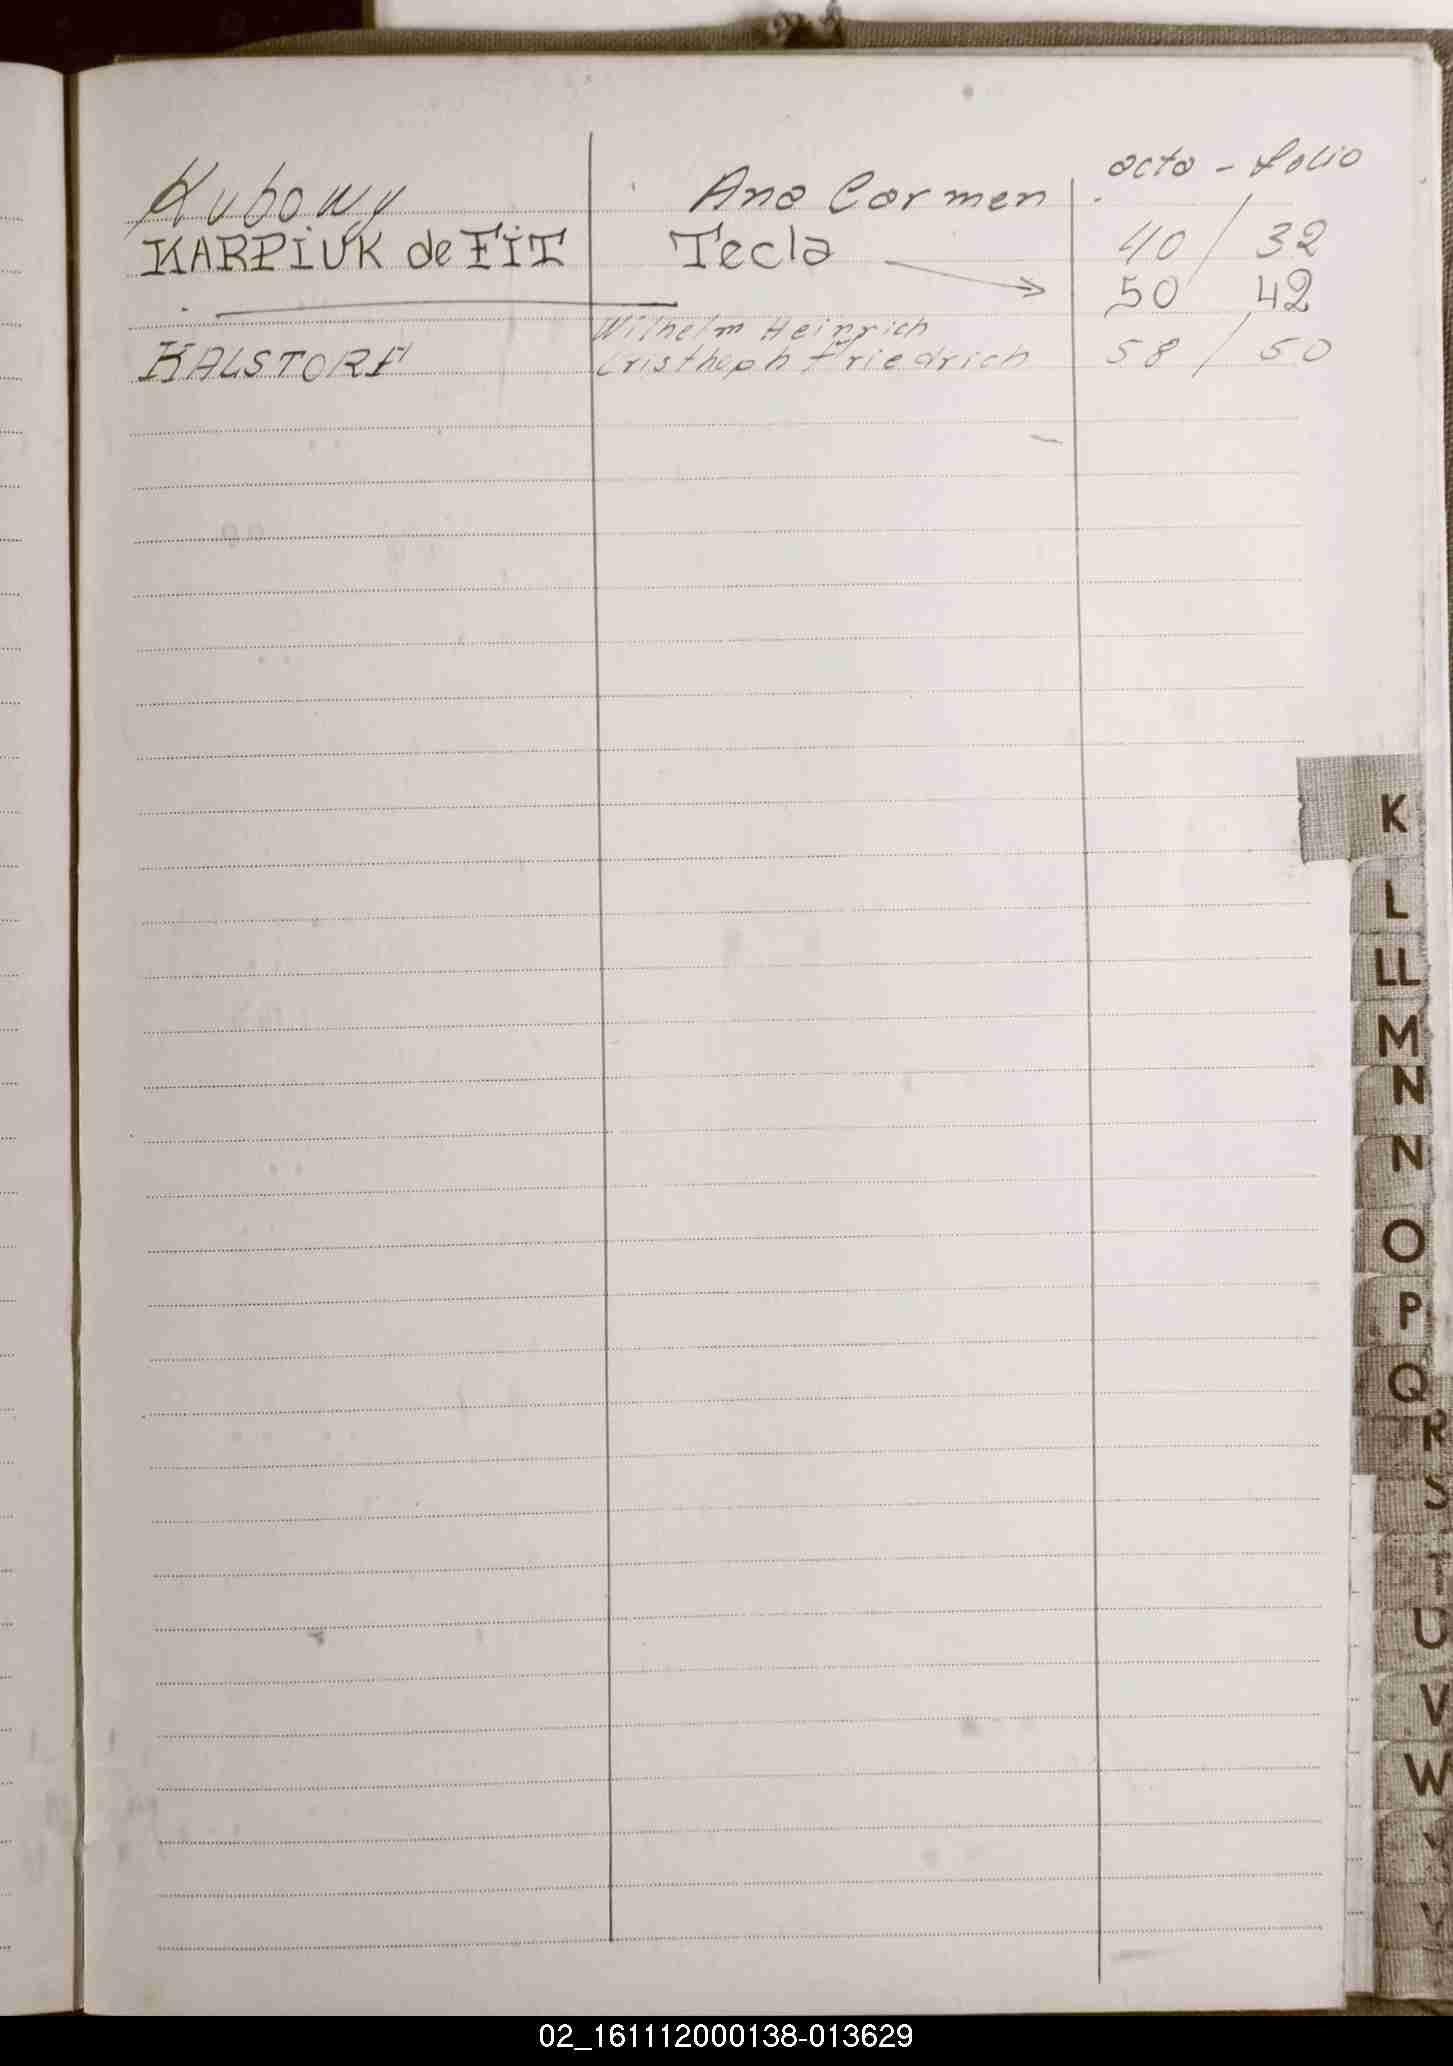 acta - folio
Kubowy Ana Carmen 40 / 32
KARPIUK de FIT Tecla 50 42
Wilhelm Heinrich
KALSTORF Cristhoph Friedrich 58 / 50
K
L
LL
M
N
N
O
P
Q
R
S
T
U
V
W
02_161112000138-013629